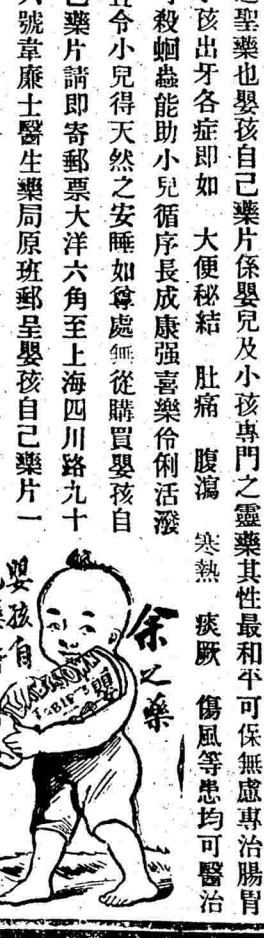 聖藥也嬰孩自己藥片係嬰兒及小孩專門之靈藥其性最和平可保無慮專治腸胃
孩出牙各症即如 大便秘結 肚痛 腹瀉 寒熱 痰厥 傷風等患均可醫治
殺蛔蟲能助小兒循序長成康强喜樂伶俐活潑
且令小兒得天然之安睡如尊處無從購買嬰孩自
己藥片請即寄郵票大洋六角至上海四川路九十
號韋廉士醫生藥局原班郵呈嬰孩自己藥片一
余之藥
嬰孩自